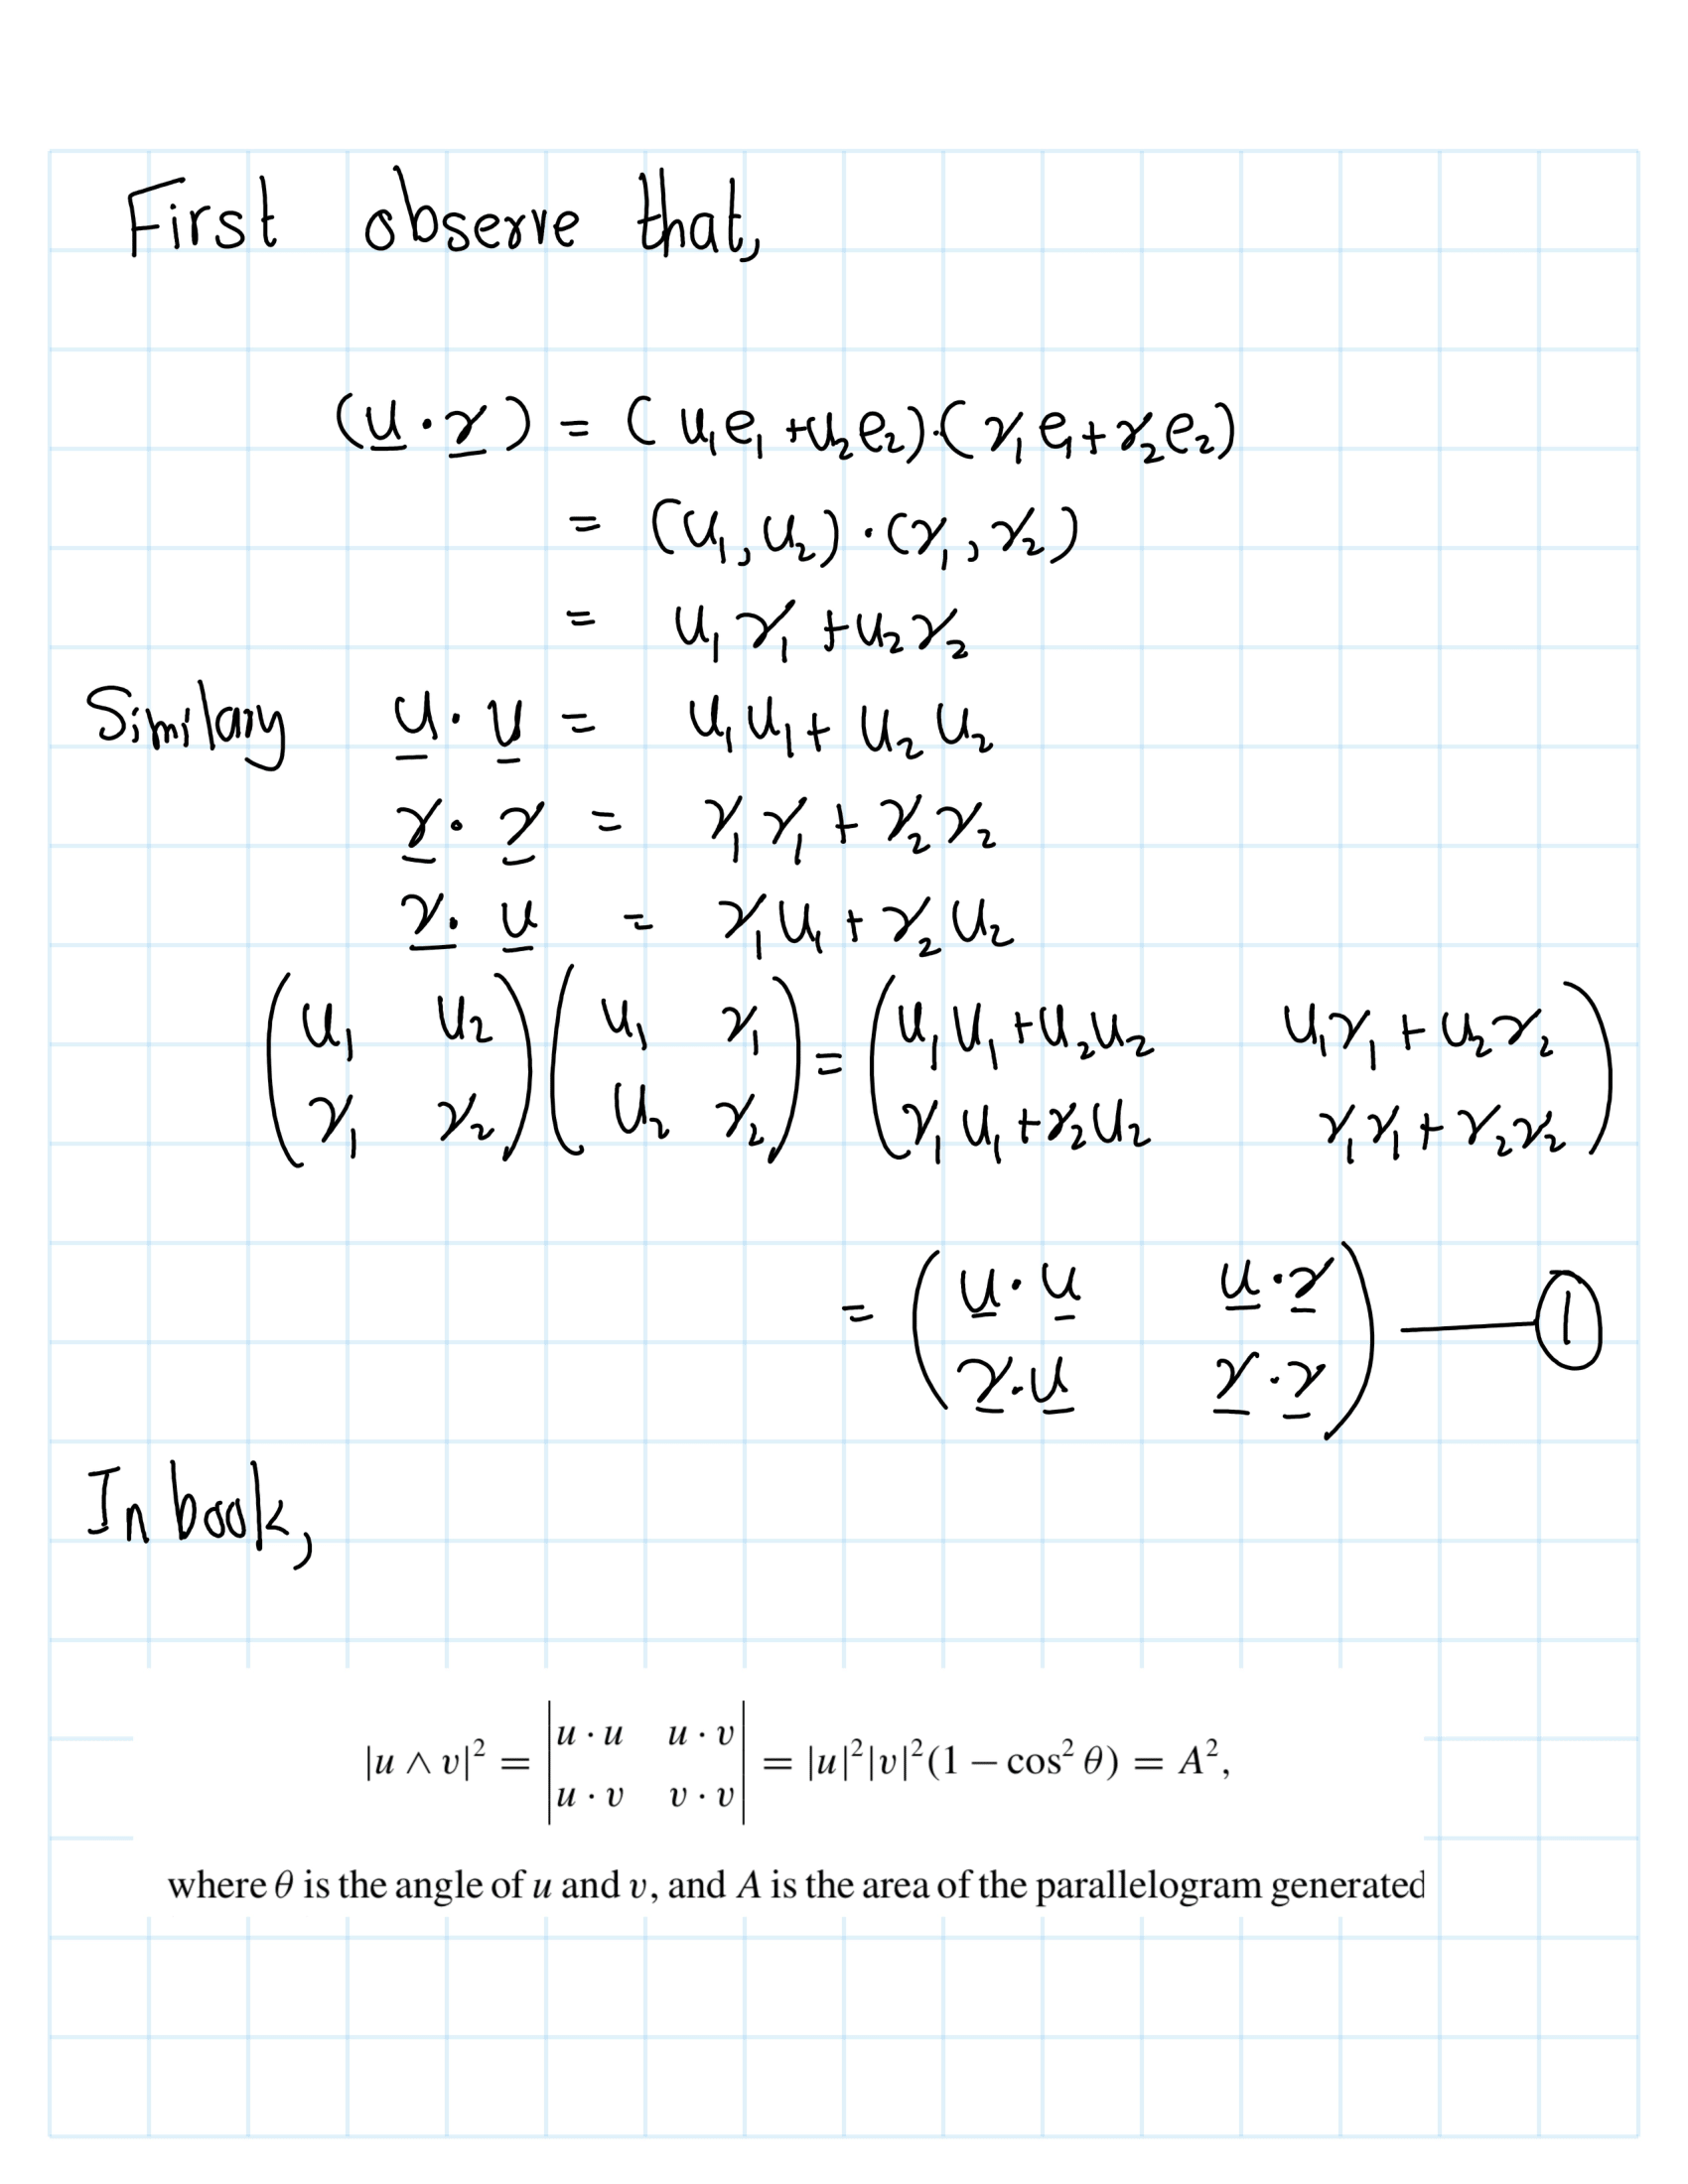 First observe that,
(u · v) = (u₁e₁ + u₂e₂)·(v₁e₁ + v₂e₂)
= (u₁, u₂) · (v₁, v₂)
= u₁v₁ + u₂v₂
Similary u · u = u₁u₁ + u₂u₂
v · v = v₁v₁ + v₂v₂
v · u = v₁u₁ + v₂u₂
(u₁ u₂) (u₁ v₁) = (u₁u₁ + u₂u₂ u₁v₁ + u₂v₂)
(v₁ v₂) (u₂ v₂) (v₁u₁ + v₂u₂ v₁v₁ + v₂v₂)
= (u · u u · v) — ①
(v · u v · v)
In book,
|u ∧ v|² = |u · u u · v| = |u|²|v|²(1 − cos² θ) = A²,
|u · v v · v|
where θ is the angle of u and v, and A is the area of the parallelogram generated